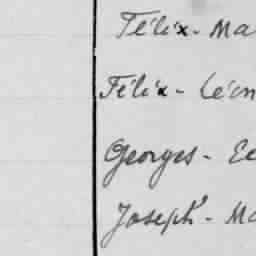 Félix - Ma
Félix - Léon
Georges - Ee
Joseph - Ma